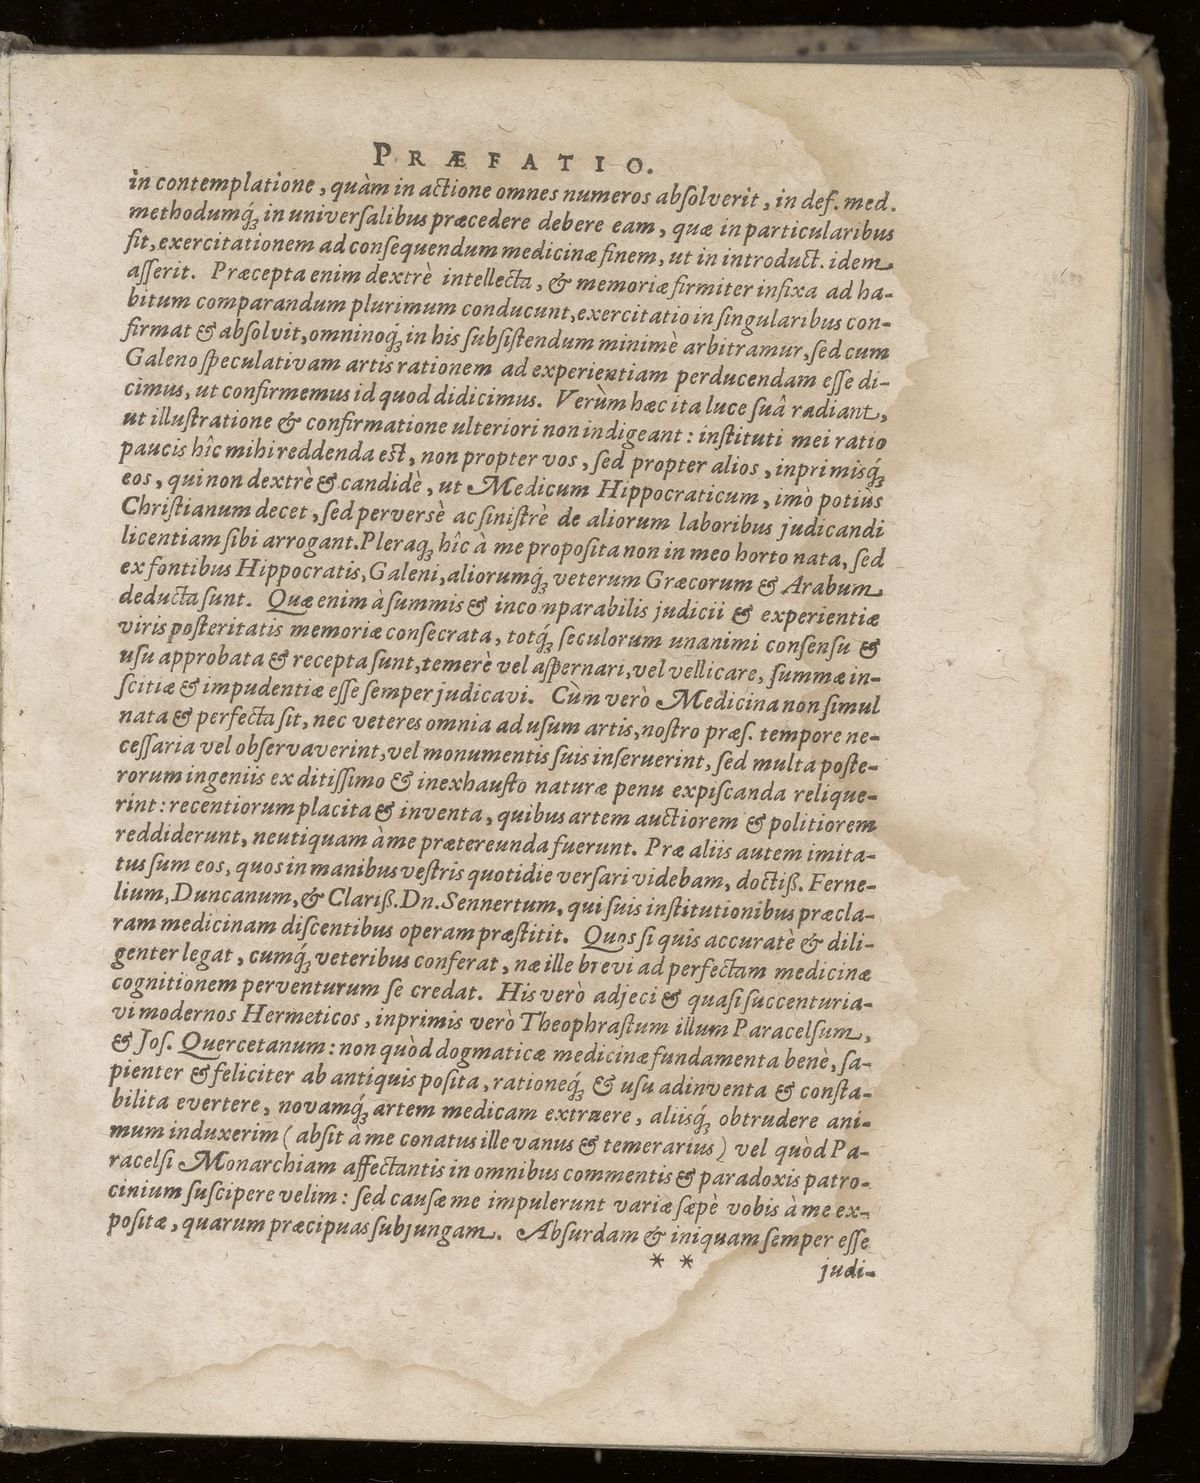 PRÆFATIO.
in contemplatione, quàm in actione omnes numeros absolverit, in def. med.
methodumq́; in universalibus præcedere debere eam, quæ in particularibus
fit, exercitationem ad consequendum medicinæ finem, ut in introduct. idem
asserit. Præcepta enim dextrè intellecta, & memoriæ firmiter infixa ad ha-
bitum comparandum plurimum conducunt, exercitatio in singularibus con-
firmat & absolvit, omninoq́; in his subsistendum minimè arbitramur, sed cum
Galeno speculativam artis rationem ad experientiam perducendam esse di-
cimus, ut confirmemus id quod didicimus. Verùm hæc ita luce suâ radiant,
ut illustratione & confirmatione ulteriori non indigeant: instituti mei ratio
paucis hîc mihi reddenda est, non propter vos, sed propter alios, inprimisq́;
eos, qui non dextrè & candidè, ut Medicum Hippocraticum, imò potiùs
Christianum decet, sed perversè ac sinistrè de aliorum laboribus judicandi
licentiam sibi arrogant. Pleraq; hîc à me proposita non in meo horto nata, sed
ex fontibus Hippocratis, Galeni, aliorumq́; veterum Græcorum & Arabum
deducta sunt. Quæ enim à summis & incomparabilis judicii & experientiæ
viris posteritatis memoriæ consecrata, totq́; seculorum unanimi consensu &
usu approbata & recepta sunt, temerè vel aspernari, vel vellicare, summæ in-
scitiæ & impudentiæ esse semper judicavi. Cùm verò Medicina non simul
nata & perfecta sit, nec veteres omnia ad usum artis, nostro præs. tempore ne-
cessaria vel observaverint, vel monumentis suis inseruerint, sed multa poste-
rorum ingeniis ex ditissimo & inexhausto naturæ penu expiscanda relique-
rint: recentiorum placita & inventa, quibus artem auctiorem & politiorem
reddiderunt, neutiquam à me prætereunda fuerunt. Præ aliis autem imita-
tus sum eos, quos in manibus vestris quotidie versari videbam, doctiß. Ferne-
lium, Duncanum, & Clariß. Dn. Sennertum, qui suis institutionibus præcla-
ram medicinam discentibus operam præstitit. Quos si quis accuratè & dili-
genter legat, cumq́; veteribus conferat, næ ille brevi ad perfectam medicinæ
cognitionem perventurum se credat. His verò adjeci & quasi succenturia-
vi modernos Hermeticos, inprimis verò Theophrastum illum Paracelsum,
& Jos. Quercetanum: non quòd dogmaticæ medicinæ fundamenta benè, sa-
pienter & feliciter ab antiquis posita, rationeq́; & usu adinventa & consta-
bilita evertere, novamq́; artem medicam extruere, aliisq́; obtrudere ani-
mum induxerim (absit à me conatus ille vanus & temerarius) vel quòd Pa-
racelsi Monarchiam affectantis in omnibus commentis & paradoxis patro-
cinium suscipere velim: sed causæ me impulerunt variæ sæpè vobis à me ex-
positæ, quarum præcipuas subjungam. Absurdam & iniquam semper esse
* * judi-